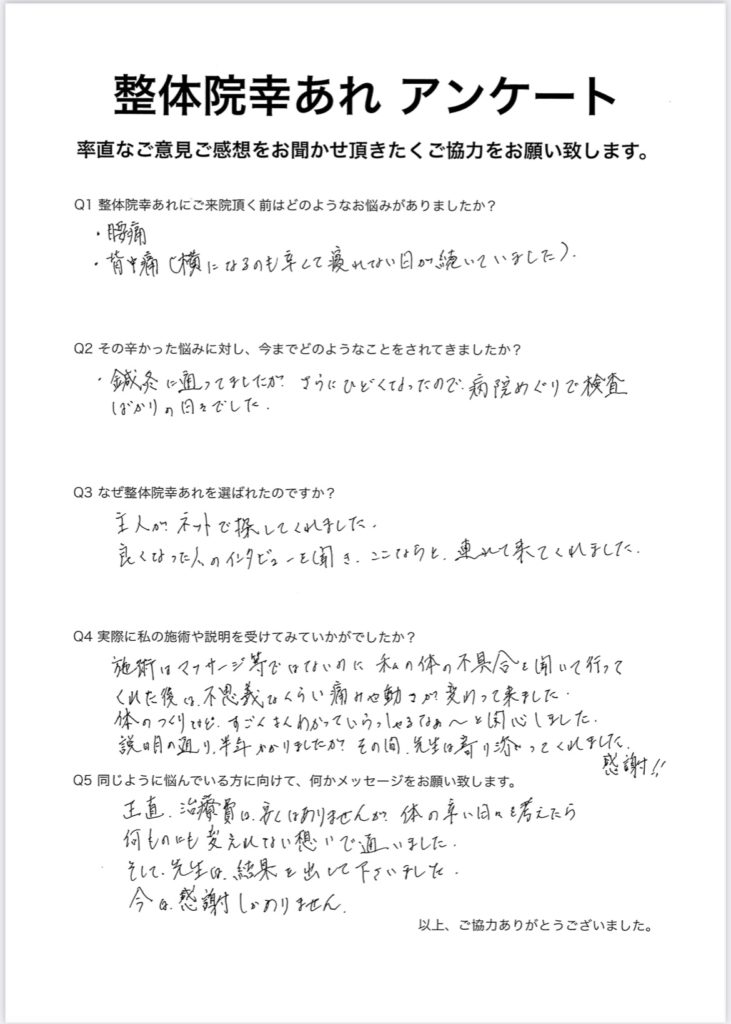 整体院幸あれ アンケート
率直なご意見ご感想をお聞かせ頂きたくご協力をお願い致します。
Q1 整体院幸あれにご来院頂く前はどのようなお悩みがありましたか？
・腰痛
・背中痛（横になるのも辛くて寝れない日が続いていました）.
Q2 その辛かった悩みに対し、今までどのようなことをされてきましたか？
・鍼灸に通ってましたが、さらにひどくなったので、病院めぐりで検査
ばかりの日々でした.
Q3 なぜ整体院幸あれを選ばれたのですか？
主人がネットで探してくれました.
良くなった人のインタビューを聞き、ここならと、連れて来てくれました.
Q4 実際に私の施術や説明を受けてみていかがでしたか？
施術はマッサージ等ではないのに 私の体の不具合を聞いて行って
くれた後は、不思議なくらい痛みや動きが変わって来ました.
体のつくりなど、すごくよくわかっていらっしゃるなぁ〜と関心しました.
説明の通り、半年かかりましたが、その間、先生は寄り添ってくれました.
感謝!!
Q5 同じように悩んでいる方に向けて、何かメッセージをお願い致します。
正直、治療費は、安くはありませんが、体の辛い日々を考えたら
何ものにも変えれない想いで通いました.
そして、先生は、結果を出して下さいました.
今は、感謝しかありません.
以上、ご協力ありがとうございました。